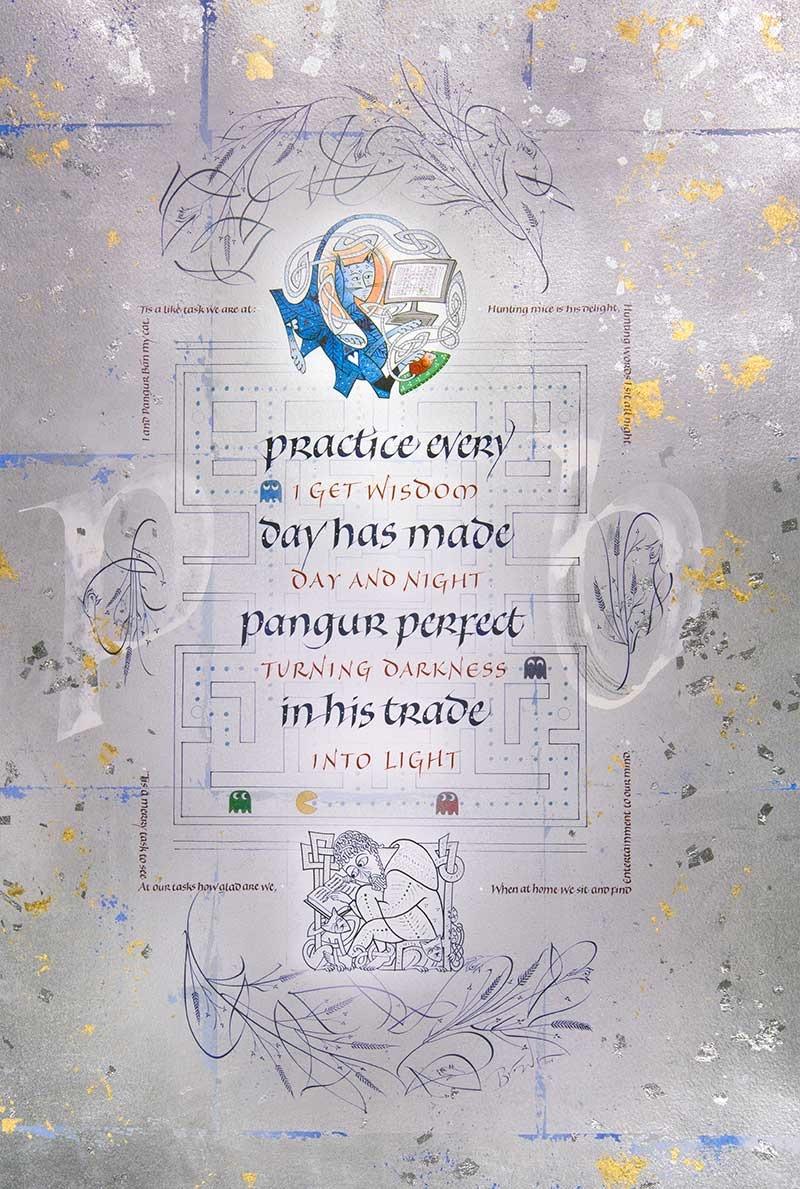 'Tis a like task we are at:
Hunting mice is his delight,
I and Pangur Bán my cat.
Hunting words I sit all night.
p b
practice every
I GET WISDOM
day has made
DAY AND NIGHT
pangur perfect
TURNING DARKNESS
in his trade
INTO LIGHT
'Tis a merry task to see
At our tasks how glad are we,
When at home we sit and find
Entertainment to our mind.